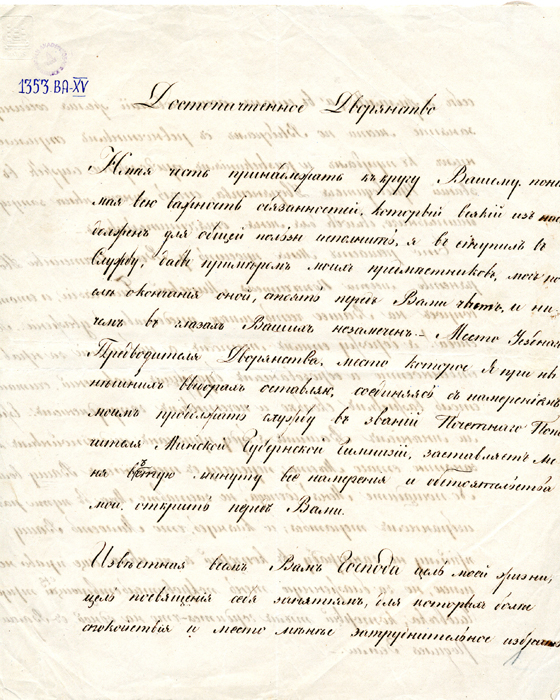 1353 ВА-XV
Достопочтенное Дворянство
Имѣя честь принадлежать къ кругу Вашему, пони
мая всю важность обязанностей, который всякій изъ насъ
долженъ для общей пользы исполнить, я вступилъ въ
службу, бывъ примѣромъ моихъ
окончаніи оной, стоять предъ Вами чистъ, и ни
чемъ въ глазахъ Вашихъ незамеченъ. Место Уезднаго
Предводителя Дворянства, место которое Я при нѣ
нѣшнихъ Выборахъ оставляю, соединяясь съ намереніемъ
моимъ продолжать службу въ званіи Почетнаго Попе
чителя Минской Губернской Гимназіи, заставляетъ Ме
ня минуту все намеренія и обстоятельства
мои открыть передъ Вами.
Извѣстная всемъ Вамъ Господа цель моей жизни,
цель посвященія себя занятіямъ, для которыхъ более
спокойствія и место мѣнее затруднительное